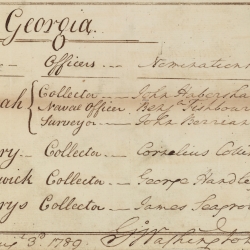 Georgia.
Officers — Nominations
ah { Collector — John Habersha
Naval Officer Benj.n Fishbour
Surveyor — John Berrian
ry — Collector — Cornelius Col
wick Collector — George Handle
rys Collector — James Seagro
3.d 1789. G:Washington